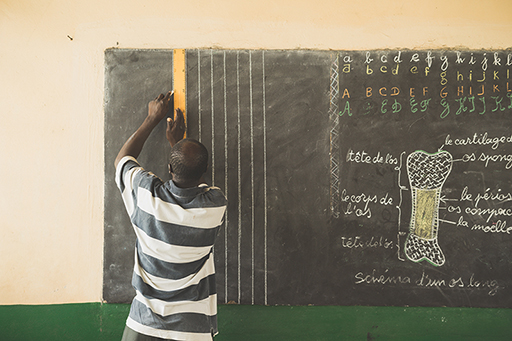 a b c d e f g h i j k l
a b c d e f g h i j k l
A B C D E F G H I J K L
A B C D E F G H I J K
le cartilage d
os spong
tête de l'os
le corps de
l'os
le périos
os compact
la moëlle
tête de l'os
Schéma d'un os long